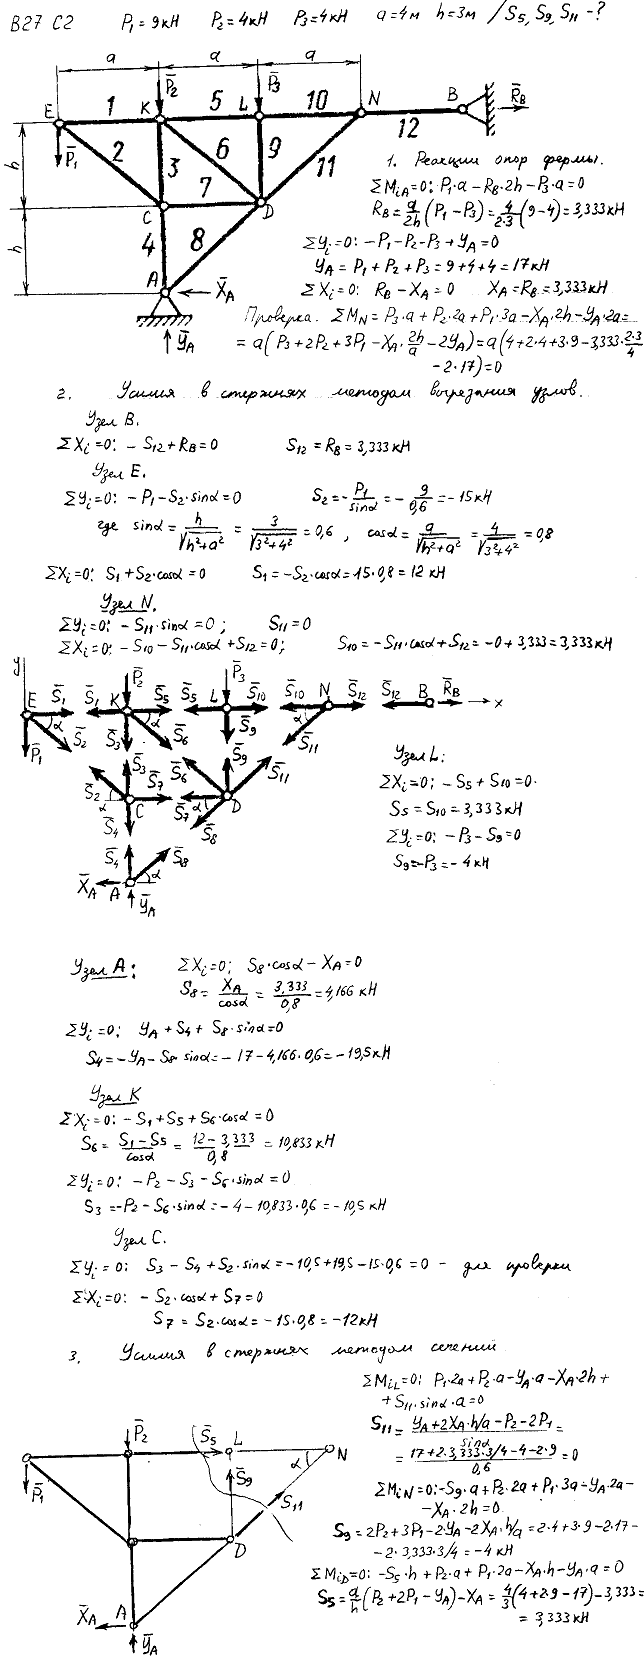 В27 С2 P₁=9кН P₂=4кН P₃=4кН a=4м h=3м / S₅, S₉, S₁₁ - ?
a a a
P̄₂ P̄₃
E 1 K 5 L 10 N B R̄_B
12
P̄₁ 2 3 6 9 11
h 7
C D
h 4 8
A X̄_A
Ȳ_A
1. Реакции опор фермы.
ΣM_iA=0: P₁·a − R_B·2h − P₃·a=0
R_B = a/2h (P₁−P₃) = 4/2·3 (9−4) = 3,333кН
ΣY_i=0: −P₁−P₂−P₃+Y_A=0
Y_A = P₁+P₂+P₃ = 9+4+4 = 17кН
ΣX_i=0: R_B − X_A = 0 X_A = R_B = 3,333кН
Проверка. ΣM_N = P₃·a + P₂·2a + P₁·3a − X_A·2h − Y_A·2a =
= a(P₃+2P₂+3P₁−X_A·2h/a −2Y_A) = a(4+2·4+3·9−3,333·2·3/4
−2·17)=0
2. Усилия в стержнях методом вырезания узлов.
Узел B.
ΣX_i=0: −S₁₂+R_B=0 S₁₂=R_B=3,333кН
Узел E.
ΣY_i=0: −P₁−S₂·sinα=0 S₂=−P₁/sinα=−9/0,6=−15кН
где sinα = h/√(h²+a²) = 3/√(3²+4²) = 0,6, cosα = a/√(h²+a²) = 4/√(3²+4²) = 0,8
ΣX_i=0: S₁+S₂·cosα=0 S₁=−S₂·cosα=15·0,8=12 кН
Узел N.
ΣY_i=0: −S₁₁·sinα=0; S₁₁=0
ΣX_i=0: −S₁₀−S₁₁·cosα+S₁₂=0; S₁₀=−S₁₁·cosα+S₁₂=−0+3,333=3,333кН
y P̄₂ P̄₃
E S̄₁ S̄₁ K S̄₅ S̄₅ L S̄₁₀ S̄₁₀ N S̄₁₂ S̄₁₂ B R̄_B x
α S̄₂ α S̄₉ α
P̄₁ S̄₃ S̄₆ S̄₁₁
S̄₃ S̄₆ S̄₉ S̄₁₁
S̄₂ S̄₇
α C S̄₇ α D
S̄₄ S̄₈
S̄₄ S̄₈
X̄_A A α
Ȳ_A
Узел L:
ΣX_i=0; −S₅+S₁₀=0.
S₅=S₁₀=3,333кН
ΣY_i=0: −P₃−S₉=0
S₉=−P₃=−4кН
Узел A: ΣX_i=0; S₈·cosα−X_A=0
S₈ = X_A/cosα = 3,333/0,8 = 4,166 кН
ΣY_i=0; Y_A+S₄+S₈·sinα=0
S₄=−Y_A−S₈·sinα=−17−4,166·0,6=−19,5кН
Узел K
ΣX_i=0: −S₁+S₅+S₆·cosα=0
S₆ = S₁−S₅/cosα = 12−3,333/0,8 = 10,833кН
ΣY_i=0: −P₂−S₃−S₆·sinα=0
S₃=−P₂−S₆·sinα=−4−10,833·0,6=−10,5кН
Узел C.
ΣY_i=0: S₃−S₄+S₂·sinα=−10,5+19,5−15·0,6=0 − для проверки
ΣX_i=0: −S₂·cosα+S₇=0
S₇=S₂·cosα=−15·0,8=−12кН
3. Усилия в стержнях методом сечений
ΣM_iL=0; P₁·2a+P₂·a−Y_A·a−X_A·2h+
+S₁₁·sinα·a=0
S₁₁ = Y_A+2X_A·h/a−P₂−2P₁/sinα =
= 17+2·3,333·3/4−4−2·9/0,6 = 0
ΣM_iN=0:−S₉·a+P₂·2a+P₁·3a−Y_A·2a−
−X_A·2h=0
S₉=2P₂+3P₁−2Y_A−2X_A·h/a=2·4+3·9−2·17−
−2·3,333·3/4=−4кН
ΣM_iD=0: −S₅·h+P₂·a+P₁·2a−X_A·h−Y_A·a=0
S₅=a/h(P₂+2P₁−Y_A)−X_A=4/3(4+2·9−17)−3,333=
=3,333кН
P̄₂ S̄₅ L N
P̄₁ S̄₉ α
S₁₁
D
X̄_A A
Ȳ_A